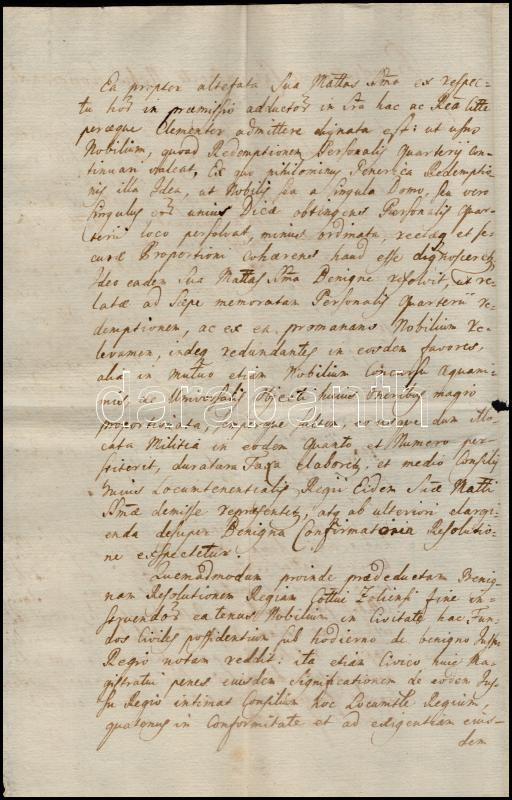 Ea propter altefata Sua Mattas Sma ex respec=
tu hor in præmissis adductor in sta hac ac Rea
peræque Clementer admittere dignata est: ut usus
Nobilium, quoad Redemptionem Personalis Quarterij con=
tinuari valeat, Ex quo nihilominus Generica Redemptio=
nis illa Idea, ut Nobilis sua a singula Domo, seu vero
singulus unius Dica obtingens Personalis Quar=
terii loco persolvat, minus ordinata, recteq et se=
curæ Proportioni cohærens haud esse dignoscere
Ideo eadem Sua Mattas Sma Benigne resolvit, ut re=
late ad sæpe memoratam Personalis Quarterii re=
demptionem, ac ex ea promanans Nobilium re=
levamen, indeq redundantes in eosdem favores,
alia in mutuo etiam Nobilium Concursu æquami=
nis, ac Universalis Objecti hujus Oneribus magis
proportionata, eousque dum Lo=
cata Militia in eodem Quanto et Numero per=
stiterit, duratura Taxa elaboretur, et medio Consilij
hujus Locumtenentialis Regii Eidem Suæ Matti
Smæ demisse repræsentetur, atq ab ulteriori elargi=
enda desuper Benigna Confirmatoria Resolutio=
ne expectetur
Quemadmodum proinde prædeductam Benig=
nam Resolutionem Regiam Cottui Zoliensi fine in=
struendor eatenus Nobilium in Civitate hac Fun=
dos Civiles possidentium sub hodierno de benigno Jussu
Regio notam reddit: ita etiam Civico huic Ma=
gistratui penes ejusdem significationem de eodem Jus=
su Regio intimat Consilium hoc Locumtle Regium,
quatenus in Conformitate et ad exigentiam ejus=
dem
darabanth